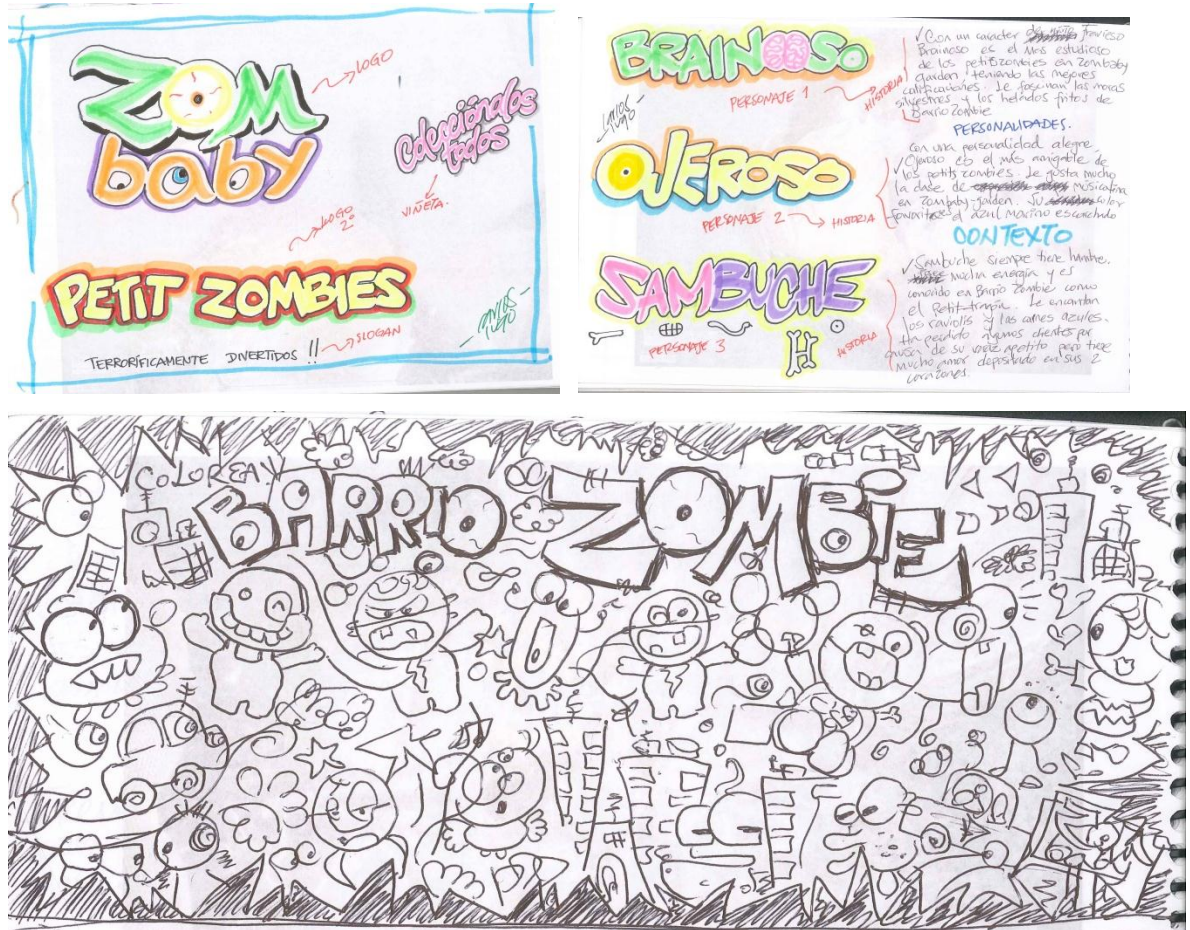 ZOM
baby
LOGO
Coleccionalos
todos
VIÑETA.
LOGO
2º
PETIT ZOMBIES
TERRORÍFICAMENTE DIVERTIDOS !!
SLOGAN
BRAINOOSO
PERSONAJE 1
HISTORIA
✓ Con un caracter travieso
Brainoso es el más estudioso
de los petit zombies en Zombaby
garden, teniendo las mejores
calificaciones. Le fascinan las moras
silvestres y los helados fritos de
Barrio Zombie
PERSONALIDADES.
OJEROSO
PERSONAJE 2
HISTORIA
Con una personalidad alegre,
✓ Ojeroso es el más amigable de
los petits zombies. Le gusta mucho
la clase de
en Zombaby-garden. Su color
favorito es el azul marino
CONTEXTO
SAMBUCHE
PERSONAJE 3
HISTORIA
✓ Sambuche siempre tiene hambre,
mucha energía y es
conocido en Barrio Zombie como
el Petit-tragón. Le encantan
los raviolis y las carnes azules.
Ha perdido algunos dientes por
causa de su voraz apetito pero tiene
mucho amor depositado en sus 2
corazones.
COLOREA
BARRIO ZOMBIE